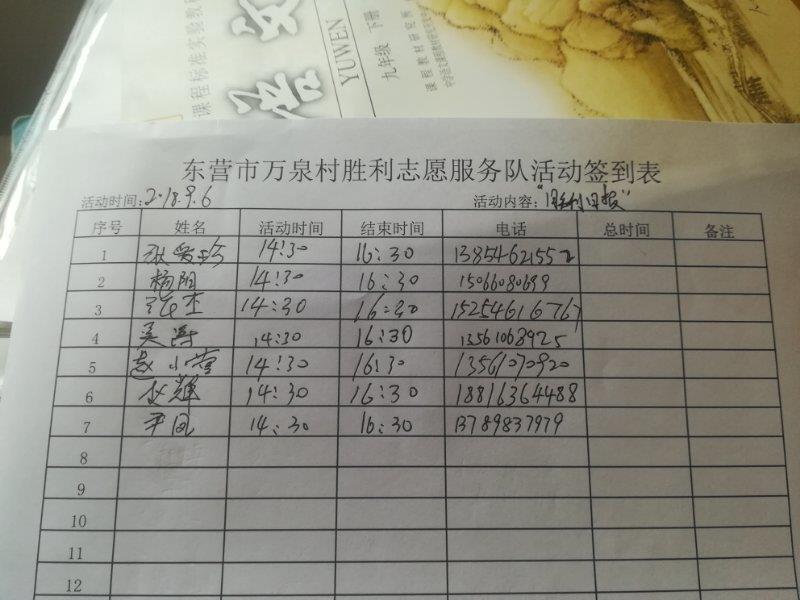 课程标准实验教
语文
YUWEN
九年级 下册
课程教材研究所
东营市万泉村胜利志愿服务队活动签到表
活动时间：2018.9.6 活动内容：“胜利日报”
序号 姓名 活动时间 结束时间 电话 总时间 备注
1 14:30 16:30 13854621552
2 杨阳 14:30 16:30 15066080699
3 张杰 14:30 16:30 15254616767
4 吴涛 14:30 16:30 13561068925
5 赵小营 14:30 16:30 13561070920
6 14:30 16:30 18816364488
7 尹凤 14:30 16:30 13789837979
8
9
10
11
12